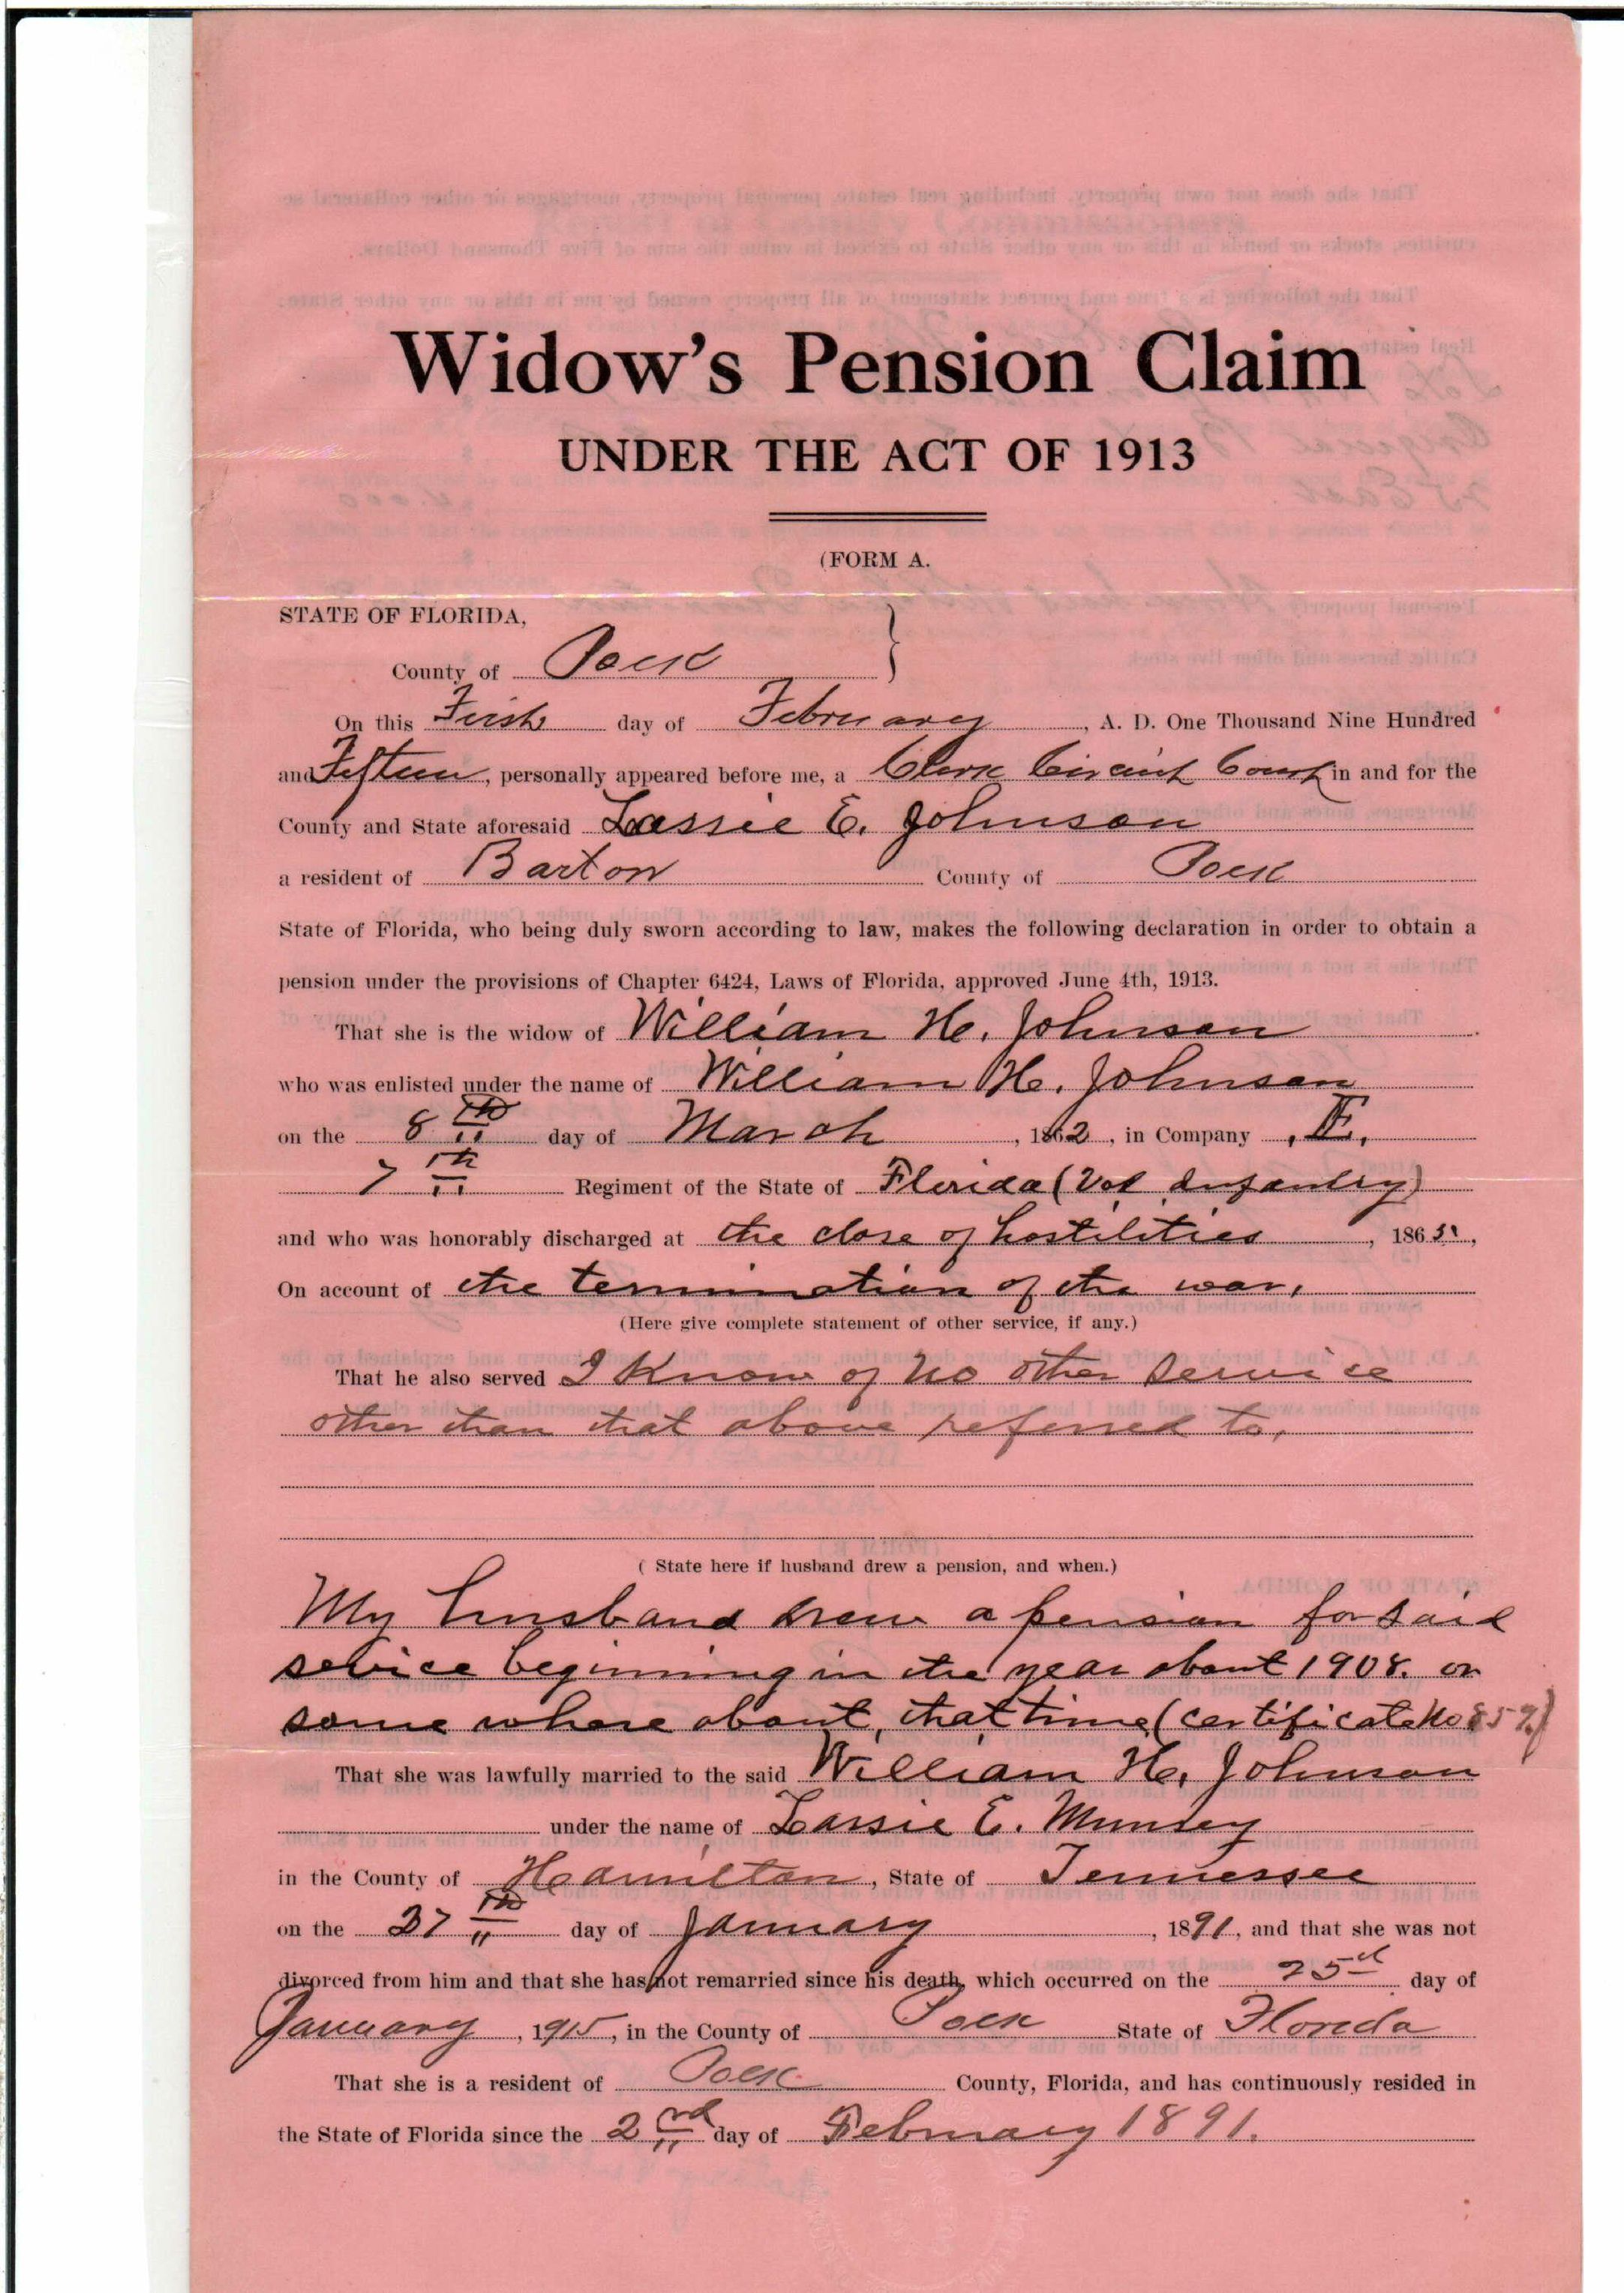 Widow's Pension Claim
UNDER THE ACT OF 1913
(FORM A.
STATE OF FLORIDA,
County of Polk
On this First day of February, A. D. One Thousand Nine Hundred
and Fifteen, personally appeared before me, a Clerk Circuit Court in and for the
County and State aforesaid Lassie E. Johnson
a resident of Barton County of Polk
State of Florida, who being duly sworn according to law, makes the following declaration in order to obtain a
pension under the provisions of Chapter 6424, Laws of Florida, approved June 4th, 1913.
That she is the widow of William H. Johnson
who was enlisted under the name of William H. Johnson
on the 8th day of March, 1862, in Company E,
7th Regiment of the State of Florida (Vol Infantry)
and who was honorably discharged at the close of hostilities, 1865,
On account of the termination of the war,
(Here give complete statement of other service, if any.)
That he also served I Know of no other service
other than that above referred to,
( State here if husband drew a pension, and when.)
My husband drew a pension for said
service beginning in the year about 1908. or
some where about, that time (certificate No
That she was lawfully married to the said William H. Johnson
under the name of Lassie E. Munsey
in the County of Hamilton, State of Tennessee
on the 27th day of January, 1891, and that she was not
divorced from him and that she has not remarried since his death, which occurred on the 25d day of
January, 1915, in the County of Polk State of Florida
That she is a resident of Polk County, Florida, and has continuously resided in
the State of Florida since the 2nd day of February 1891.